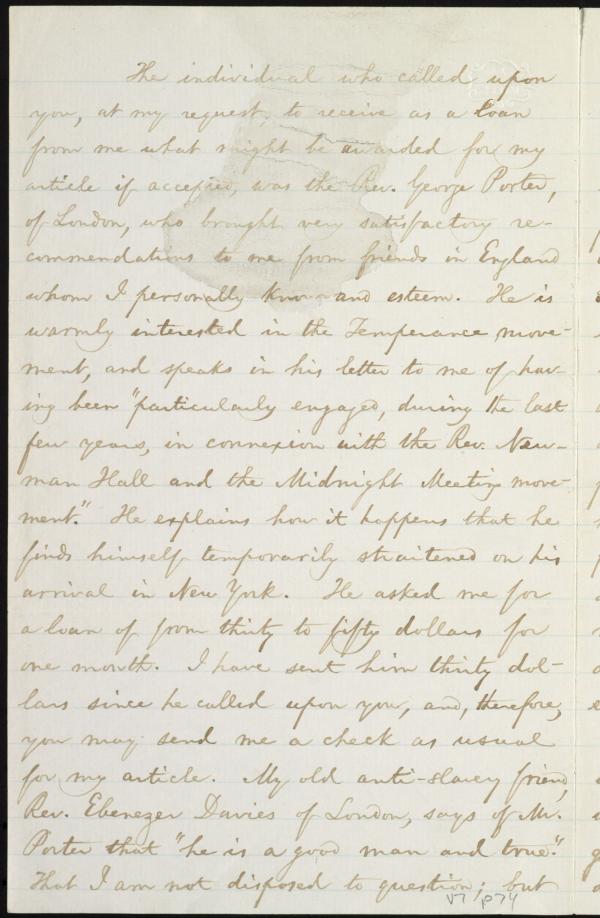 The individual who called upon
you, at my request, to receive as a loan
from me what might be awarded for my
article if accepted, was the Rev. George Porter,
of London, who brought very satisfactory re-
commendations to me from friends in England
whom I personally know and esteem. He is
warmly interested in the Temperance move-
ment, and speaks in his letter to me of hav-
ing been "particularly engaged, during the last
few years, in connexion with the Rev. New-
man Hall and the Midnight Meeting move-
ment." He explains how it happens that he
finds himself temporarily straitened on his
arrival in New York. He asked me for
a loan of from thirty to fifty dollars for
one month. I have sent him thirty dol-
lars since he called upon you, and, therefore,
you may send me a check as usual
for my article. My old anti-slavery friend,
Rev. Ebenezer Davies of London, says of Mr.
Porter that "he is a good man and true."
That I am not disposed to question; but
v7 p74